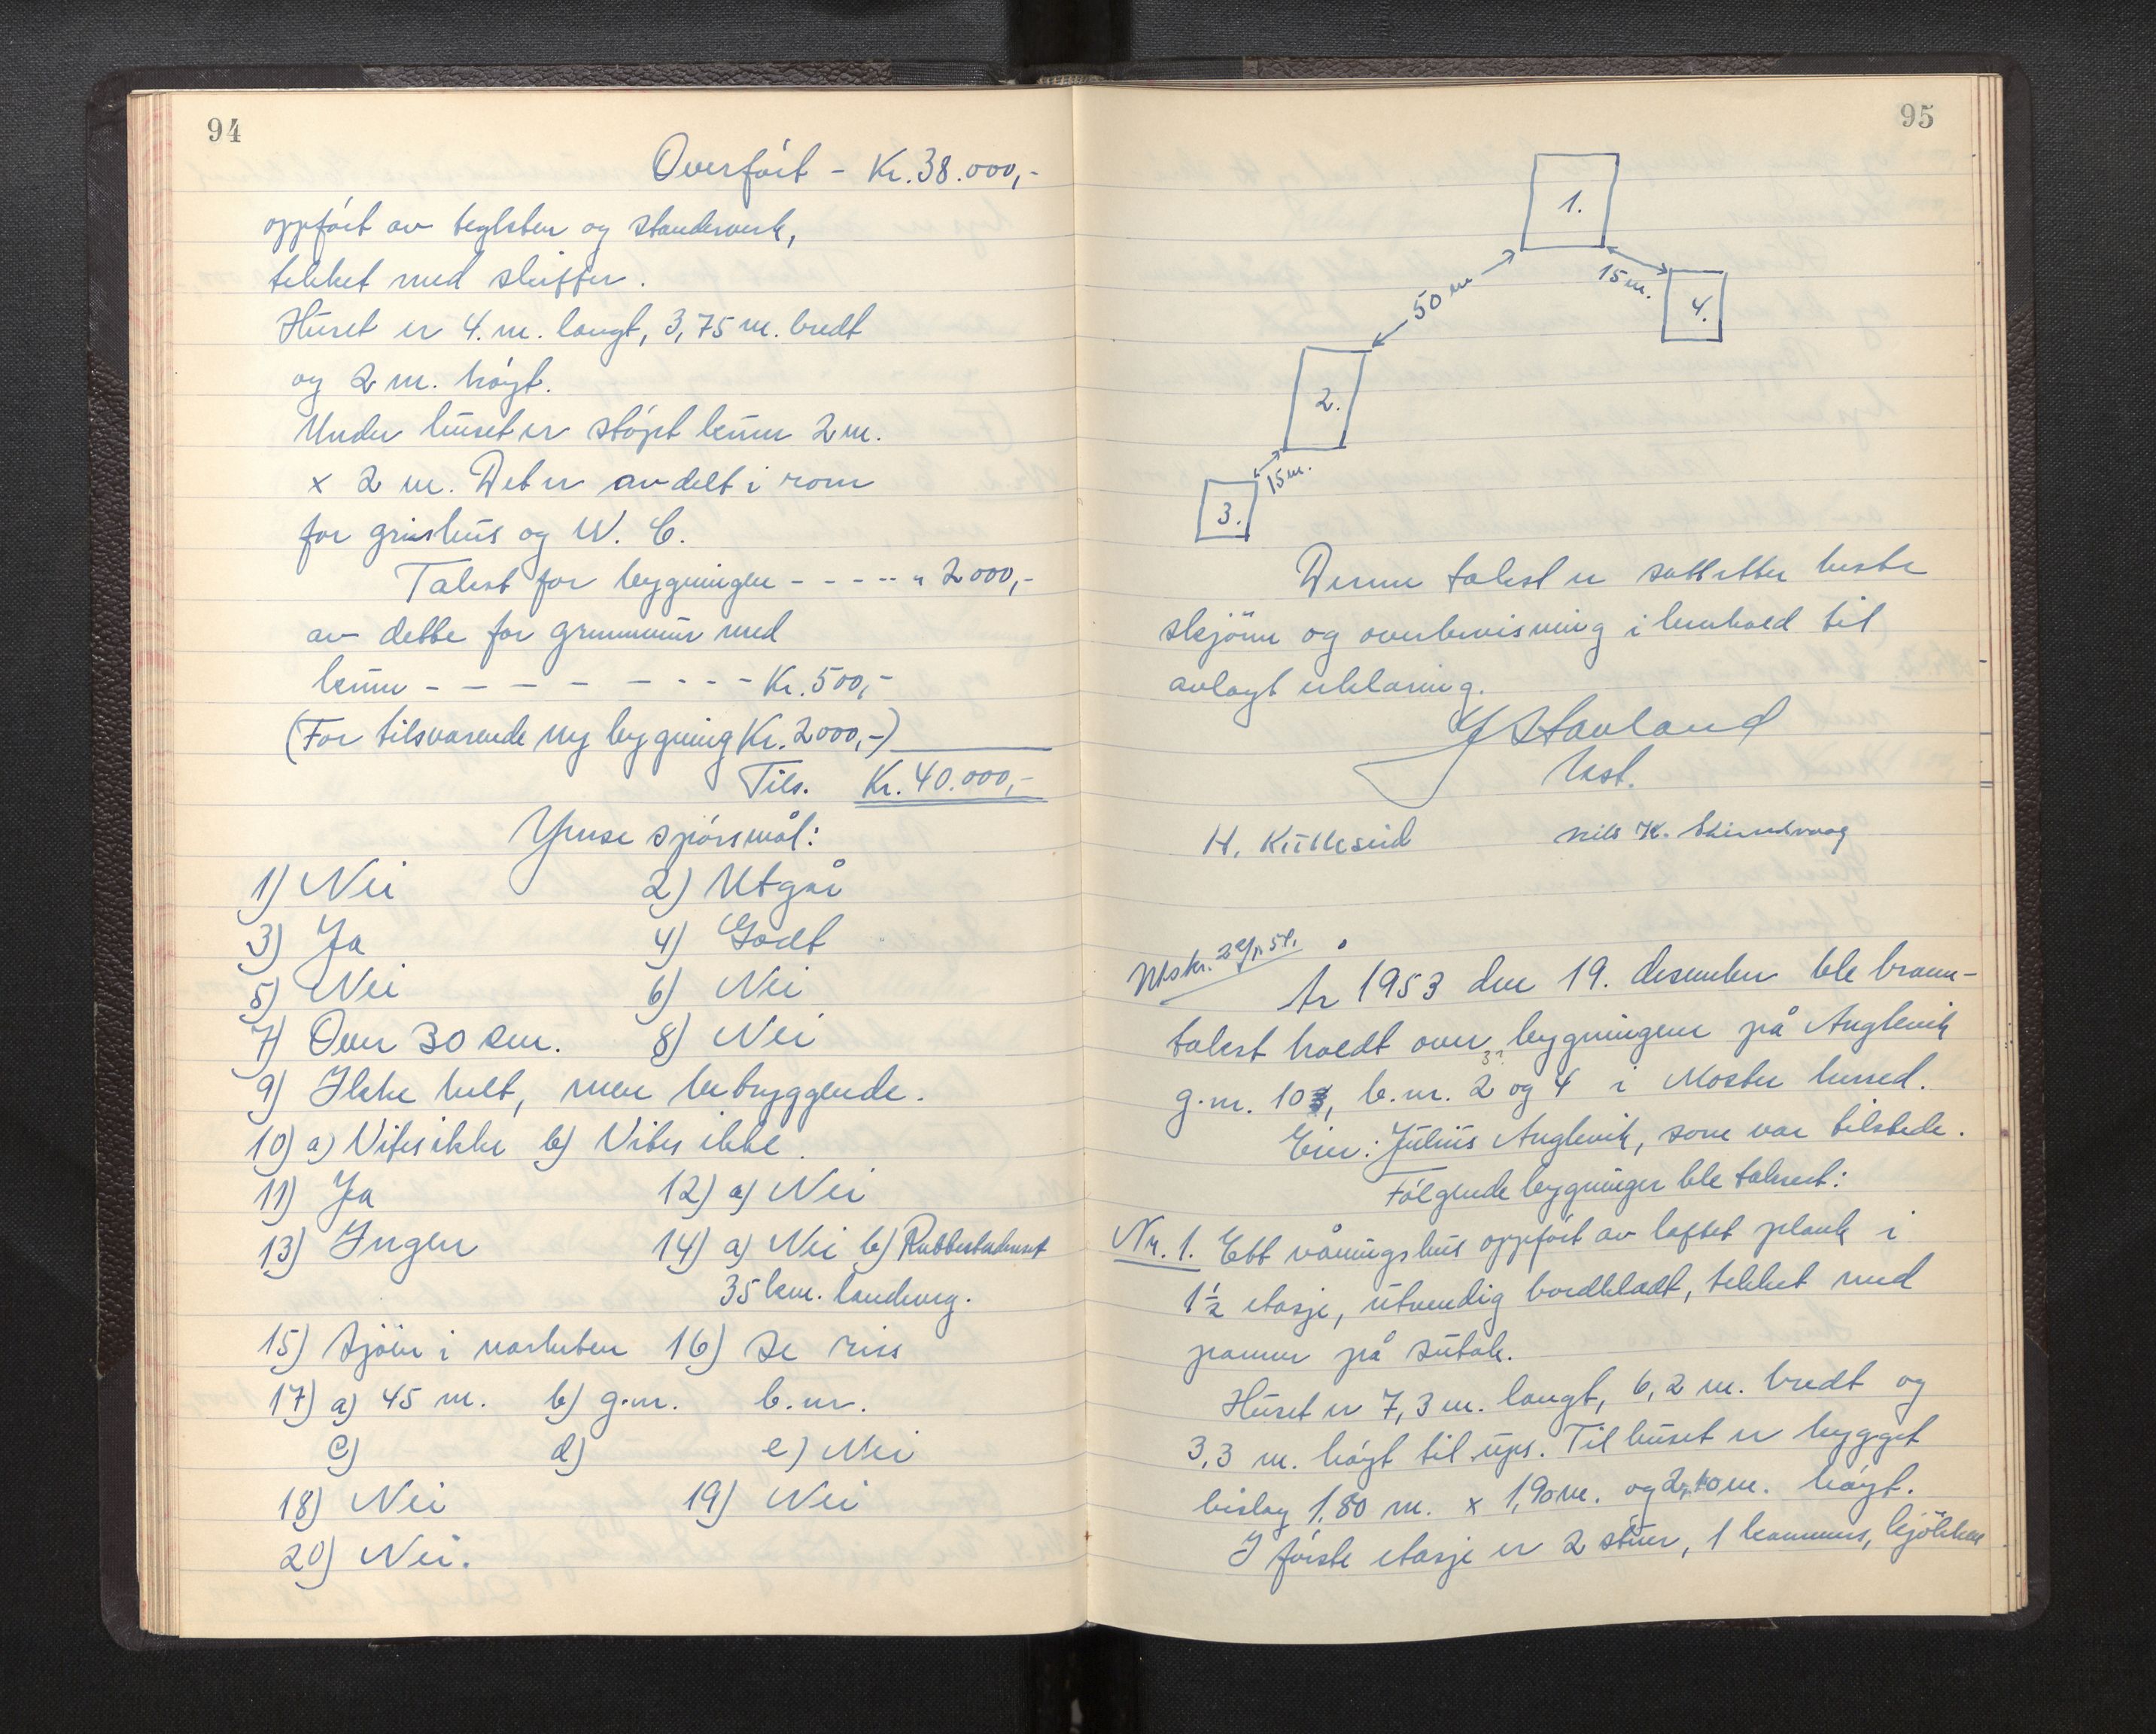 94
Overført - Kr. 38.000,-
oppført av teglsten og standerverk,
tekket med skiffer.
Huset er 4. m. langt, 3,75 m. bredt
og 2 m. høgt.
Under huset er støpt kum 2 m.
x 2 m. Det er avdelt i rom
for grishus og W. C.
Takst for bygningen - - - - - " 2000,-
av dette for grunnmur med
kum - - - - - - - - - Kr. 500,-
(For tilsvarende ny bygning Kr. 2000,-)
Tils. Kr. 40.000,-
Ymse spørsmål:
1) Nei 2) Utgår
3) Ja 4) Godt
5) Nei 6) Nei
7) Over 30 cm. 8) Nei
9) Ikke helt, men betryggende.
10) a) Vites ikke b) Vites ikke.
11) Ja 12) a) Nei
13) Ingen 14) a) Nei b) Rubbestadneset
35 km. landveg.
15) Sjøen i nærheten 16) Se riss
17) a) 45 m. b) g.nr. b.nr.
c) d) e) Nei
18) Nei 19) Nei
20) Nei.
95
1.
50 m
15 m.
4.
2.
15 m.
3.
Denne takst er satt etter beste
skjønn og overbevisning i henhold til
avlagt erklæring.
J Stavland
lest.
H. Kulleseid Nils K.
Utskr.
År 1953 den 19. desember ble brann-
takst holdt over bygningene på Auglevik
g.nr. 103, b.nr. 2 og 4 i Moster herred.
Eier: Julius Auglevik, som var tilstede.
Følgende bygninger ble taksert:
Nr. 1. Ett våningshus oppført av laftet plank i
1½ etasje, utvendig bordkledt, tekket med
panner på sutak.
Huset er 7,3 m. langt, 6,2 m. bredt og
3,3 m. høgt til ups. Til huset er bygget
bislag 1,80 m. x 1,90 m. og 2,40 m. høgt.
I første etasje er 2 stuer, 1 kammers, kjøkken